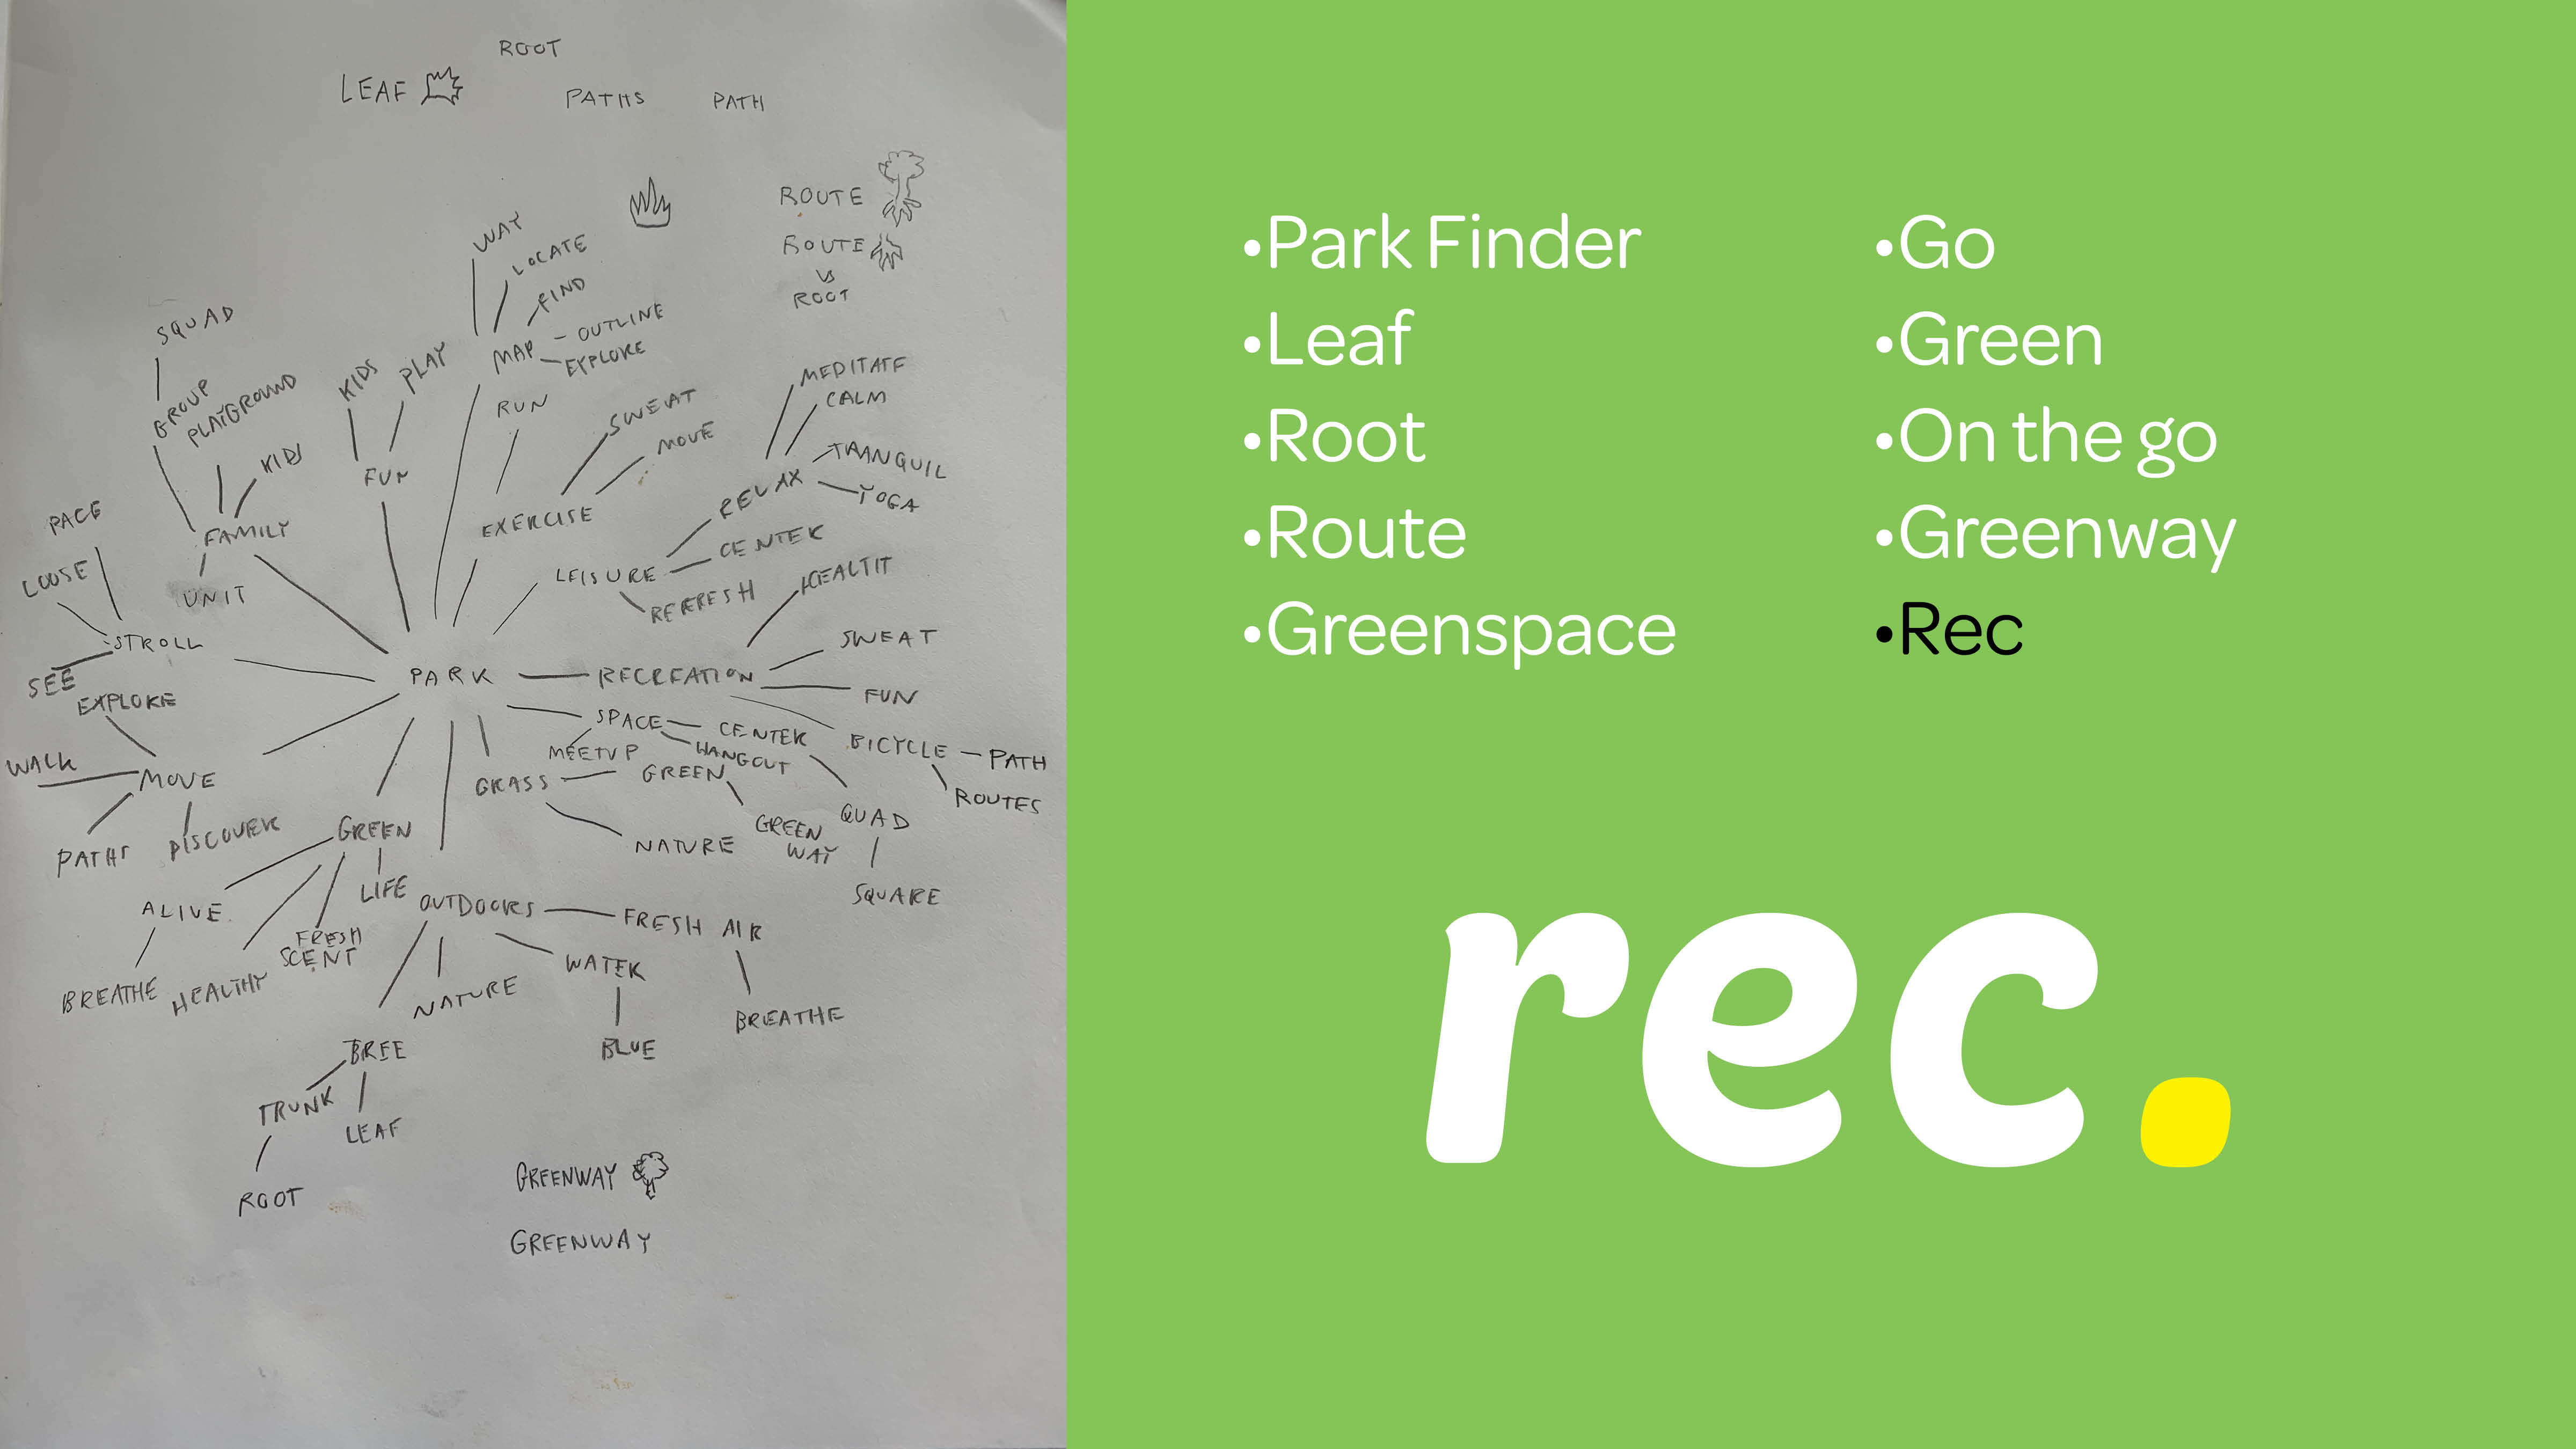 ROOT
LEAF
PATHS
PATH
ROUTE
ROUTE
VS
ROOT
WAY
LOCATE
FIND
MAP
OUTLINE
EXPLORE
SQUAD
GROUP
PLAYGROUND
KIDS
FAMILY
UNIT
KIDS
PLAY
FUN
RUN
SWEAT
MOVE
EXERCISE
MEDITATE
CALM
TRANQUIL
YOGA
RELAX
LEISURE
CENTER
REFRESH
PACE
LOOSE
STROLL
SEE
PARK
RECREATION
HEALTH
SWEAT
FUN
BICYCLE
PATH
ROUTES
SPACE
CENTER
HANGOUT
MEETUP
QUAD
SQUARE
GRASS
GREEN
GREEN
WAY
NATURE
EXPLORE
WALK
MOVE
PATHS
DISCOVER
GREEN
LIFE
ALIVE
BREATHE
HEALTHY
FRESH
SCENT
OUTDOORS
FRESH AIR
BREATHE
WATER
BLUE
NATURE
TRUNK
LEAF
ROOT
GREENWAY
GREENWAY
•Park Finder
•Leaf
•Root
•Route
•Greenspace
•Go
•Green
•On the go
•Greenway
•Rec
rec.